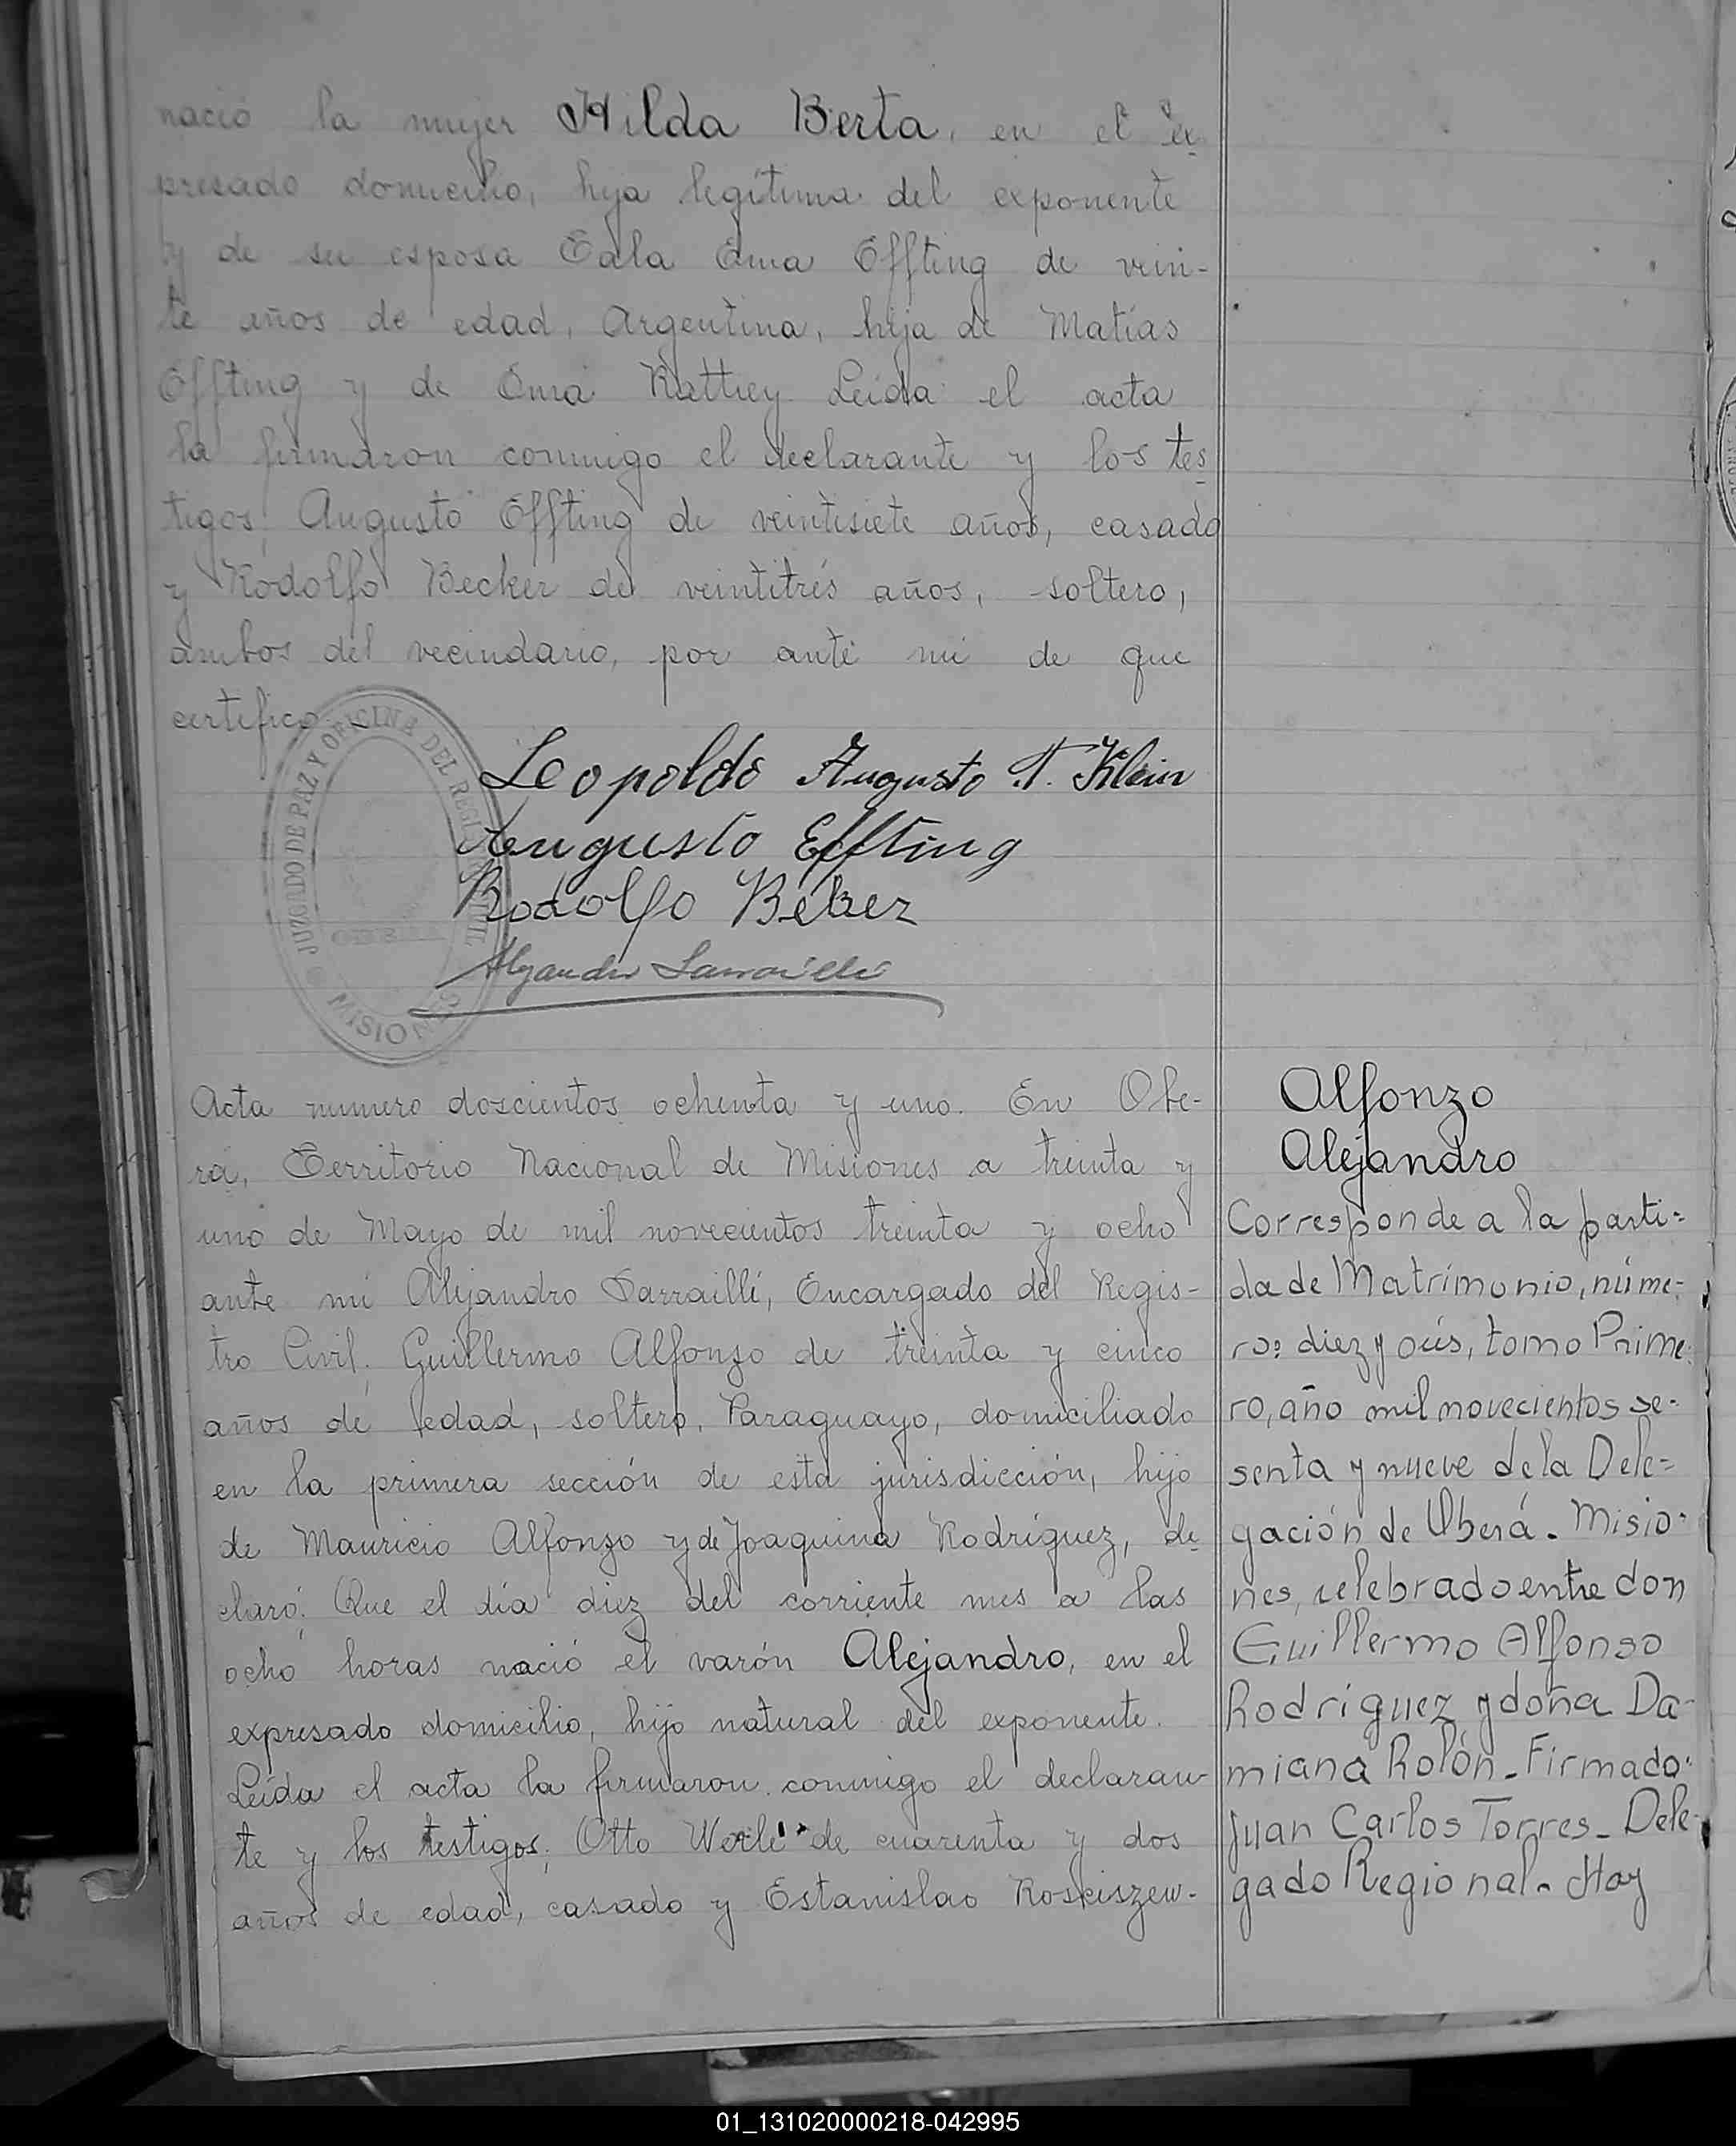 nació la mujer Hilda Berta, en el ex-
presado domicilio, hija legítima del exponente
y de su esposa Ema Effting de vein-
te años de edad, Argentina, hija de Matías
Effting y de Ema Leída el acta
la firmaron conmigo el declarante y los tes-
tigos, Augusto Effting de veintisiete años, casado
y Rodolfo Becker de veintitrés años, soltero,
ambos del vecindario, por ante mi de que
certifico.
JUZGADO DE PAZ Y OFICINA DEL REGISTRO CIVIL
MISIONES
Leopoldo Augusto T. Klein
Augusto Effting
Rodolfo Beker
Alejandro Sarraillé
Acta numero doscientos ochenta y uno. En Obe-
rá, Territorio Nacional de Misiones a treinta y
uno de Mayo de mil novecientos treinta y ocho
ante mi Alejandro Sarraillé, Encargado del Regis-
tro Civil, Guillermo Alfonzo de treinta y cinco
años de edad, soltero, Paraguayo, domiciliado
en la primera sección de esta jurisdicción, hijo
de Mauricio Alfonzo y de Joaquina Rodríguez, de-
claró: Que el día diez del corriente mes a las
ocho horas nació el varón Alejandro, en el
expresado domicilio, hijo natural del exponente.
Leída el acta la firmaron conmigo el declaran-
te y los testigos, Otto Werle de cuarenta y dos
años de edad, casado y Estanislao Rosciszew-
Alfonzo
Alejandro
Corresponde a la parti-
da de Matrimonio, núme-
ro: diez y seis, tomo Prime-
ro, año mil novecientos se-
senta y nueve de la Dele-
gación de Oberá - Misio-
nes, celebrado entre don
Guillermo Alfonso
Rodriguez y doña Da-
miana Rolón - Firmado:
Juan Carlos Torres - Dele-
gado Regional - Hay
01_131020000218-042995